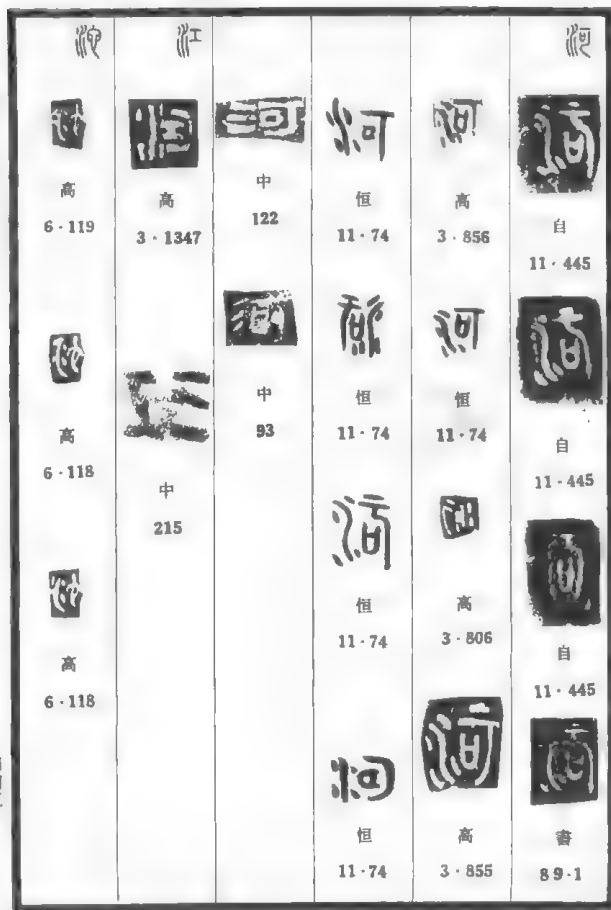 河
河
自
11·445
河
自
11·445
自
11·445
書
89·1
河
高
3·856
河
恒
11·74
高
3·806
河
高
3·855
河
恒
11·74
河
恒
11·74
河
恒
11·74
河
恒
11·74
河
中
122
中
93
江
高
3·1347
中
215
沱
高
6·119
高
6·118
高
6·118